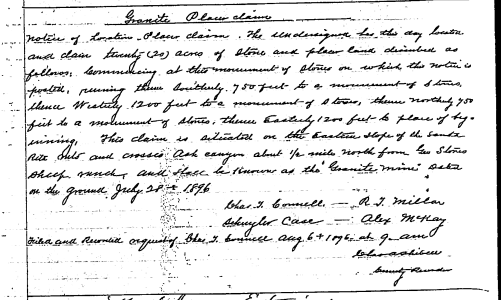 Granite Placer claim
Notice of Location Placer claim. The undersigned has this day located
and claim twenty (20) acres of stone and placer land described as
follows; Commencing at this monument of stones on which this notice is
posted, running thence Southerly 750 feet to a monument of stones,
thence Westerly 1200 feet to a monument of stones, thence northerly 750
feet to a monument of stones, thence Easterly 1200 feet to place of beg-
inning. This claim is situated on the Eastern slope of the Santa
Rita and crosses Ash canyon about 1/2 mile north from Geo Stones
sheep ranch, and shall be known as the "Granite mine" Dated
on the ground July 28th 1896
Chas. T. Connell — R. T. Miller
Schuyler Case — Alex McKay
Filed and Recorded request of Chas. T. Connell Aug 6th 1896, at 9 am
County Recorder